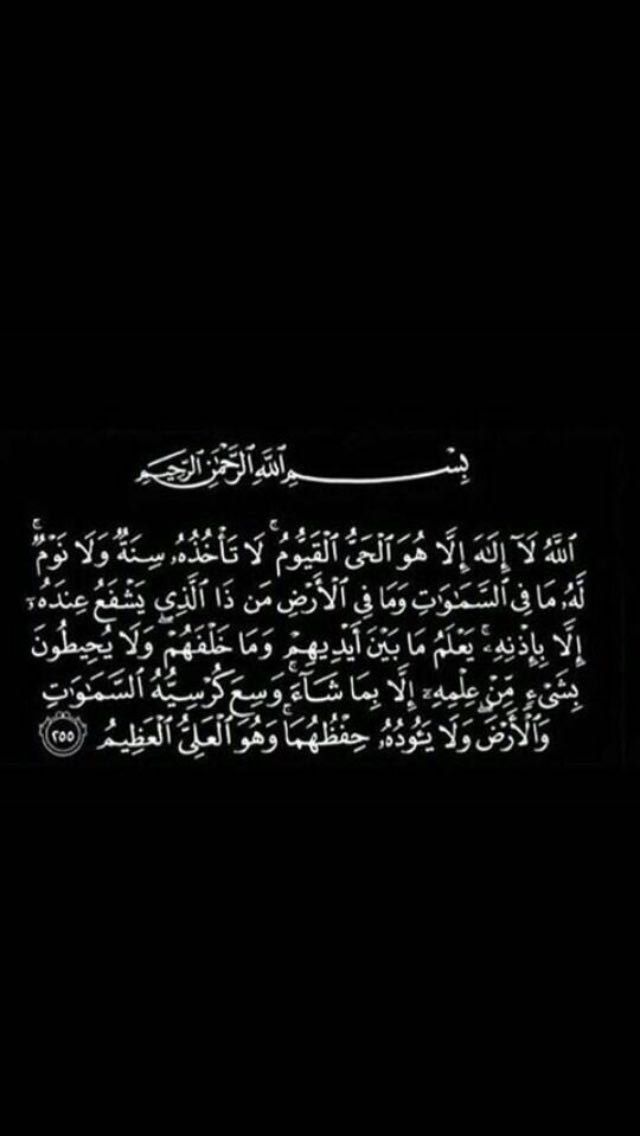 بِسْمِ ٱللَّهِ ٱلرَّحْمَٰنِ ٱلرَّحِيمِ
ٱللَّهُ لَآ إِلَٰهَ إِلَّا هُوَ ٱلْحَىُّ ٱلْقَيُّومُ ۚ لَا تَأْخُذُهُۥ سِنَةٌ وَلَا نَوْمٌ ۚ
لَّهُۥ مَا فِى ٱلسَّمَٰوَٰتِ وَمَا فِى ٱلْأَرْضِ ۗ مَن ذَا ٱلَّذِى يَشْفَعُ عِندَهُۥٓ
إِلَّا بِإِذْنِهِۦ ۚ يَعْلَمُ مَا بَيْنَ أَيْدِيهِمْ وَمَا خَلْفَهُمْ ۖ وَلَا يُحِيطُونَ
بِشَىْءٍ مِّنْ عِلْمِهِۦٓ إِلَّا بِمَا شَآءَ ۚ وَسِعَ كُرْسِيُّهُ ٱلسَّمَٰوَٰتِ
وَٱلْأَرْضَ ۖ وَلَا يَـُٔودُهُۥ حِفْظُهُمَا ۚ وَهُوَ ٱلْعَلِىُّ ٱلْعَظِيمُ ٢٥٥